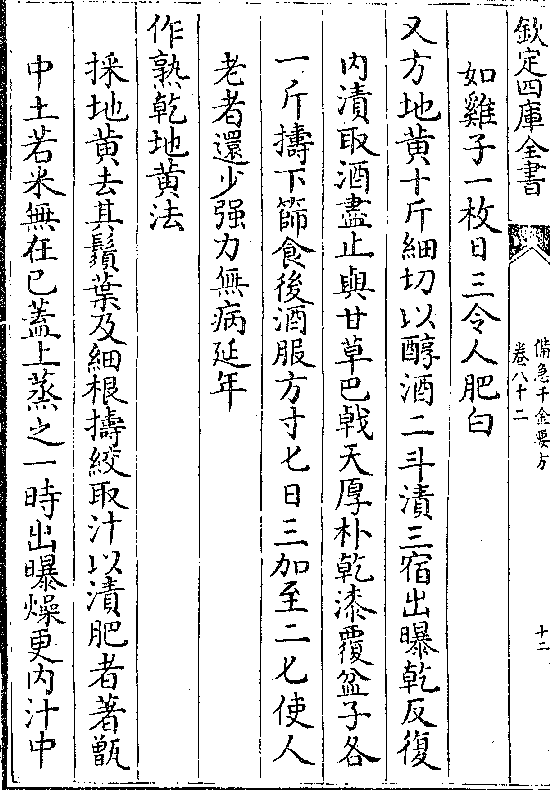 欽定四庫全書
備急千金要方
卷八十二
十二
如雞子一枚日三令人肥白
又方地黄十斤細切以醇酒二斗漬三宿出曝乾反復
内漬取酒盡止與甘草巴戟天厚朴乾漆覆盆子各
一斤擣下篩食後酒服方寸匕日三加至二匕使人
老者還少强力無病延年
作熟乾地黄法
採地黄去其鬚葉及細根擣絞取汁以漬肥者著甑
中土若米無在已蓋上蒸之一時出曝燥更内汁中